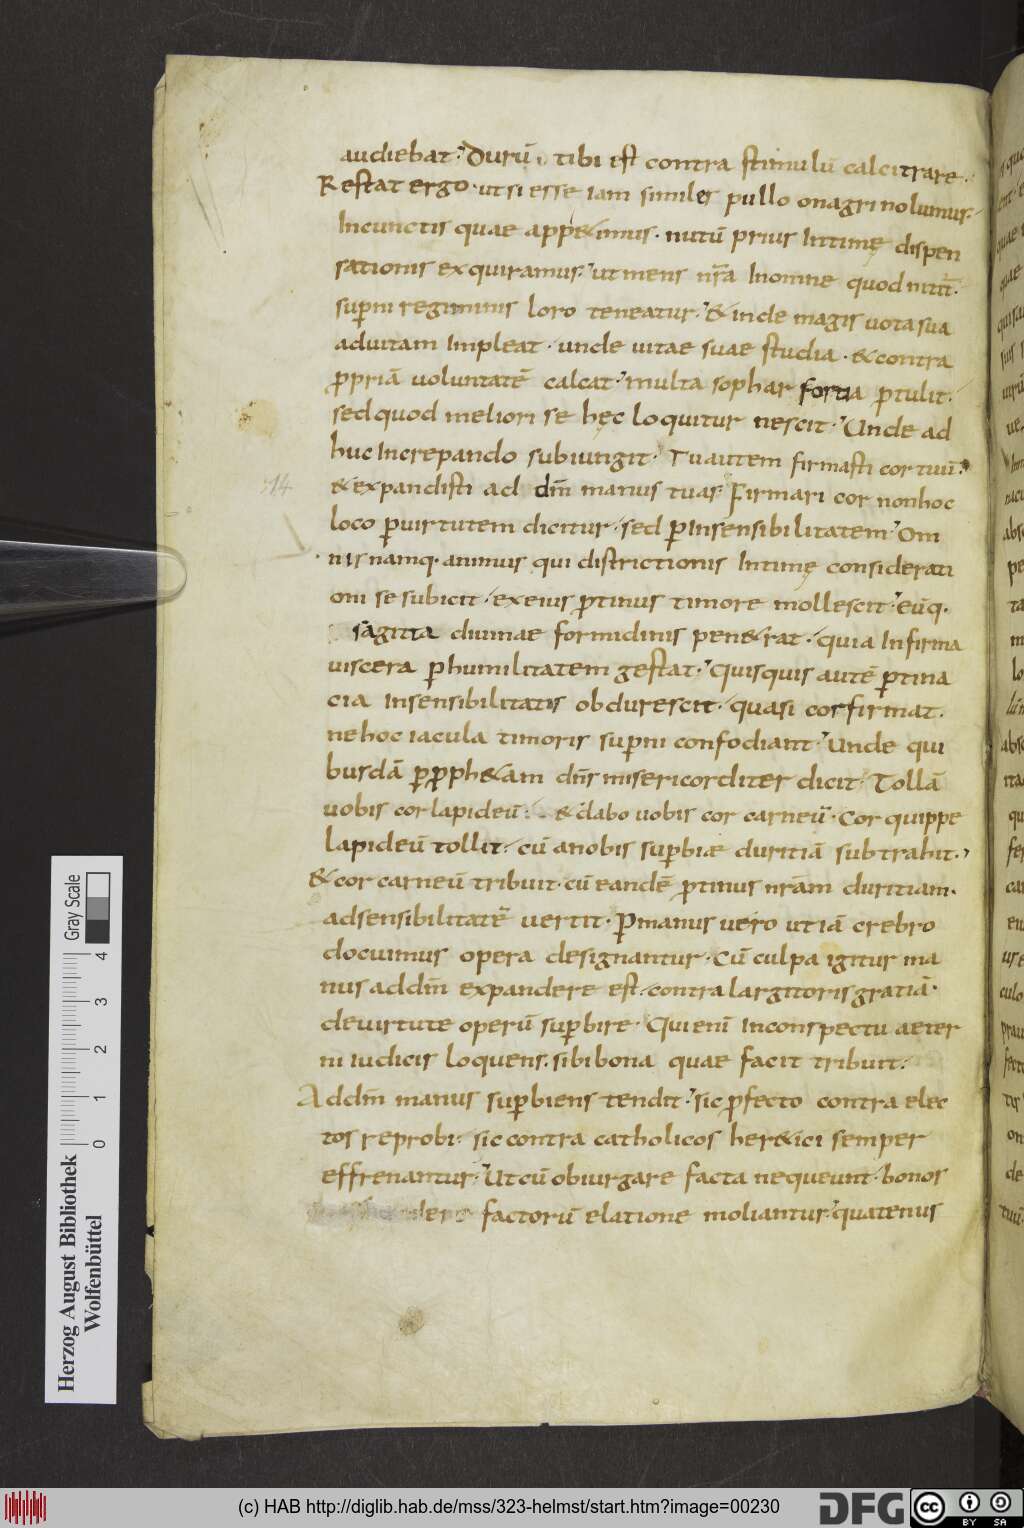 audiebat. Durū tibi est contra stimulū calcitrare.
Restat ergo. ut si esse iam similes pullo onagri nolumus.
Incunctis quae app&imus. nutū prius Intimę dispen
sationis exquiramus. ut mens nr̄a Inomne quod nitit̄.
sup̄ni regiminis loro teneatur. & inde magis uota sua
aduitam Impleat. unde uitae suae studia. & contra
ꝓpriā uoluntatē calcat. multa sophar fortia ꝓtulit.
sed quod meliori se hęc loquitur nescit. Unde ad
huc Increpando subiungit. Tu autem firmasti cor tuū.
& expandisti ad dn̄m manus tuas. Firmari cor non hoc
loco ꝑuirtutem dicitur. sed ꝑInsensibilitatem. Om
nis namq. animus qui districtionis Intimę considerati
oni se subicit. ex eius ꝓtinus timore mollescit. eūq.
sagitta diuinae formidinis pen&rat. quia Infirma
uiscera ꝑhumilitatem gestat. Quisquis autē ꝑtina
cia Insensibilitatis obdurescit. quasi cor firmat.
ne hoc iacula timoris sup̄ni confodiant. Unde qui
busdā ꝑ ꝓph&am dn̄s misericorditer dicit. Tollā
uobis cor lapideū. & dabo uobis cor carneū. Cor quippe
lapideū tollit. cū anobis suꝑbiæ duritiā subtrahit.
& cor carneū tribuit. cū eandē ꝓtinus nr̄am duritiam.
adsensibilitatē uertit. Ꝑmanus uero ut iā crebro
docuimus opera designantur. Cū culpa igitur ma
nus ad dn̄m expandere est. contra largitoris gratiā.
deuirtute operū suꝑbire. Qui enī Inconspectu aeter
ni iudicis loquens. sibi bona quae facit tribuit.
Ad dn̄m manus suꝑbiens tendit. sic ꝓfecto contra elec
tos reprobi. sic contra catholicos her&ici semper
effrenantur. Ut cū obiurgare facta nequeunt. bonos
factorū elatione moliantur. quatenus
514
Herzog August Bibliothek
Wolfenbüttel
0 1 2 3 4
Gray Scale
(c) HAB http://diglib.hab.de/mss/323-helmst/start.htm?image=00230
DFG
cc BY SA